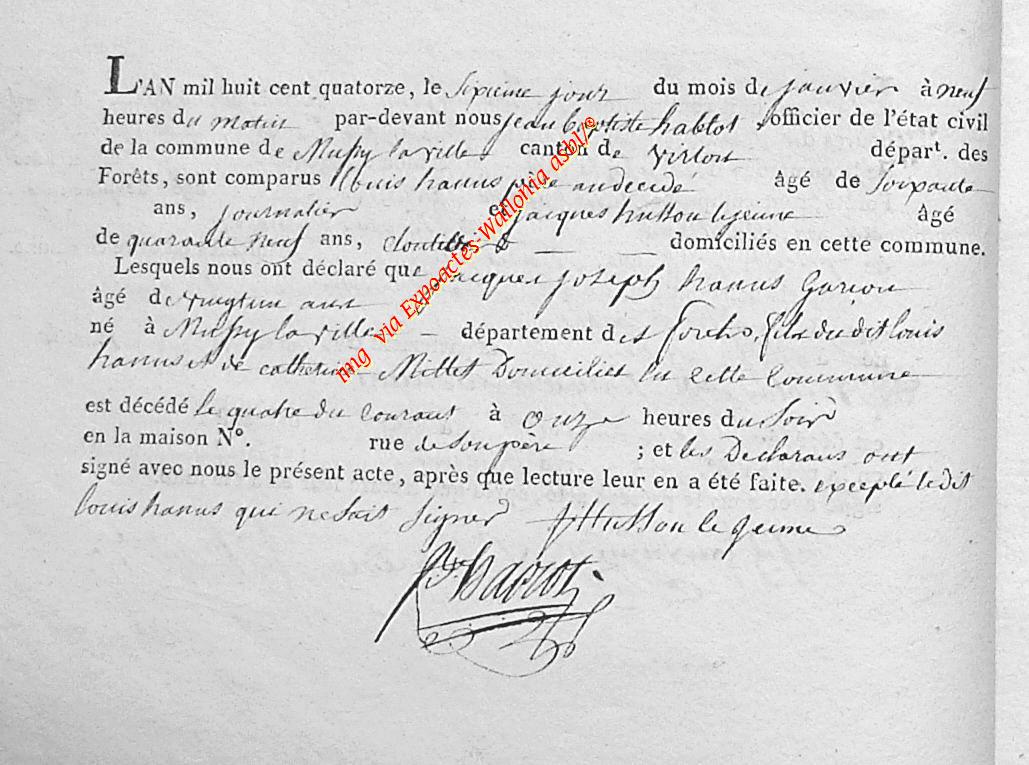 L'AN mil huit cent quatorze, le Sixieme jour du mois de janvier à neuf
heures du matin par-devant nous jean baptiste hablot officier de l'état civil
de la commune de Mussy la ville canton de virton dépar^t. des
Forêts, sont comparus louis hanus père du decédé âgé de Soixante
ans, journalier et jacques husson le jeune âgé
de quarante neuf ans, cloutier domiciliés en cette commune.
Lesquels nous ont déclaré que jacques joseph hanus Garçon
âgé de vingt un ans
né à Mussy la ville département des forets, fils du dit louis
hanus et de catherine Millet Domiciliés en cette commune
est décédé le quatre du courant à onze heures du Soir
en la maison N°. rue de Son père ; et les Declarans ont
signé avec nous le présent acte, après que lecture leur en a été faite. excepté le dit
louis hanus qui ne Sait Signer J Husson le jeune
Bte hablot
img via Expoactes-Wallonia asbl/©